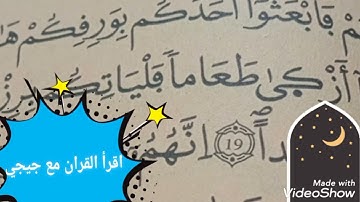 فَابْعَثُوٓا أَحَدَكُم بِوَرِقِكُمْ
أَزْكَىٰ طَعَاماً فَلْيَاتِكُم
19 اِنَّهُم
اقرأ القران مع جيجي
Made with
VideoShow